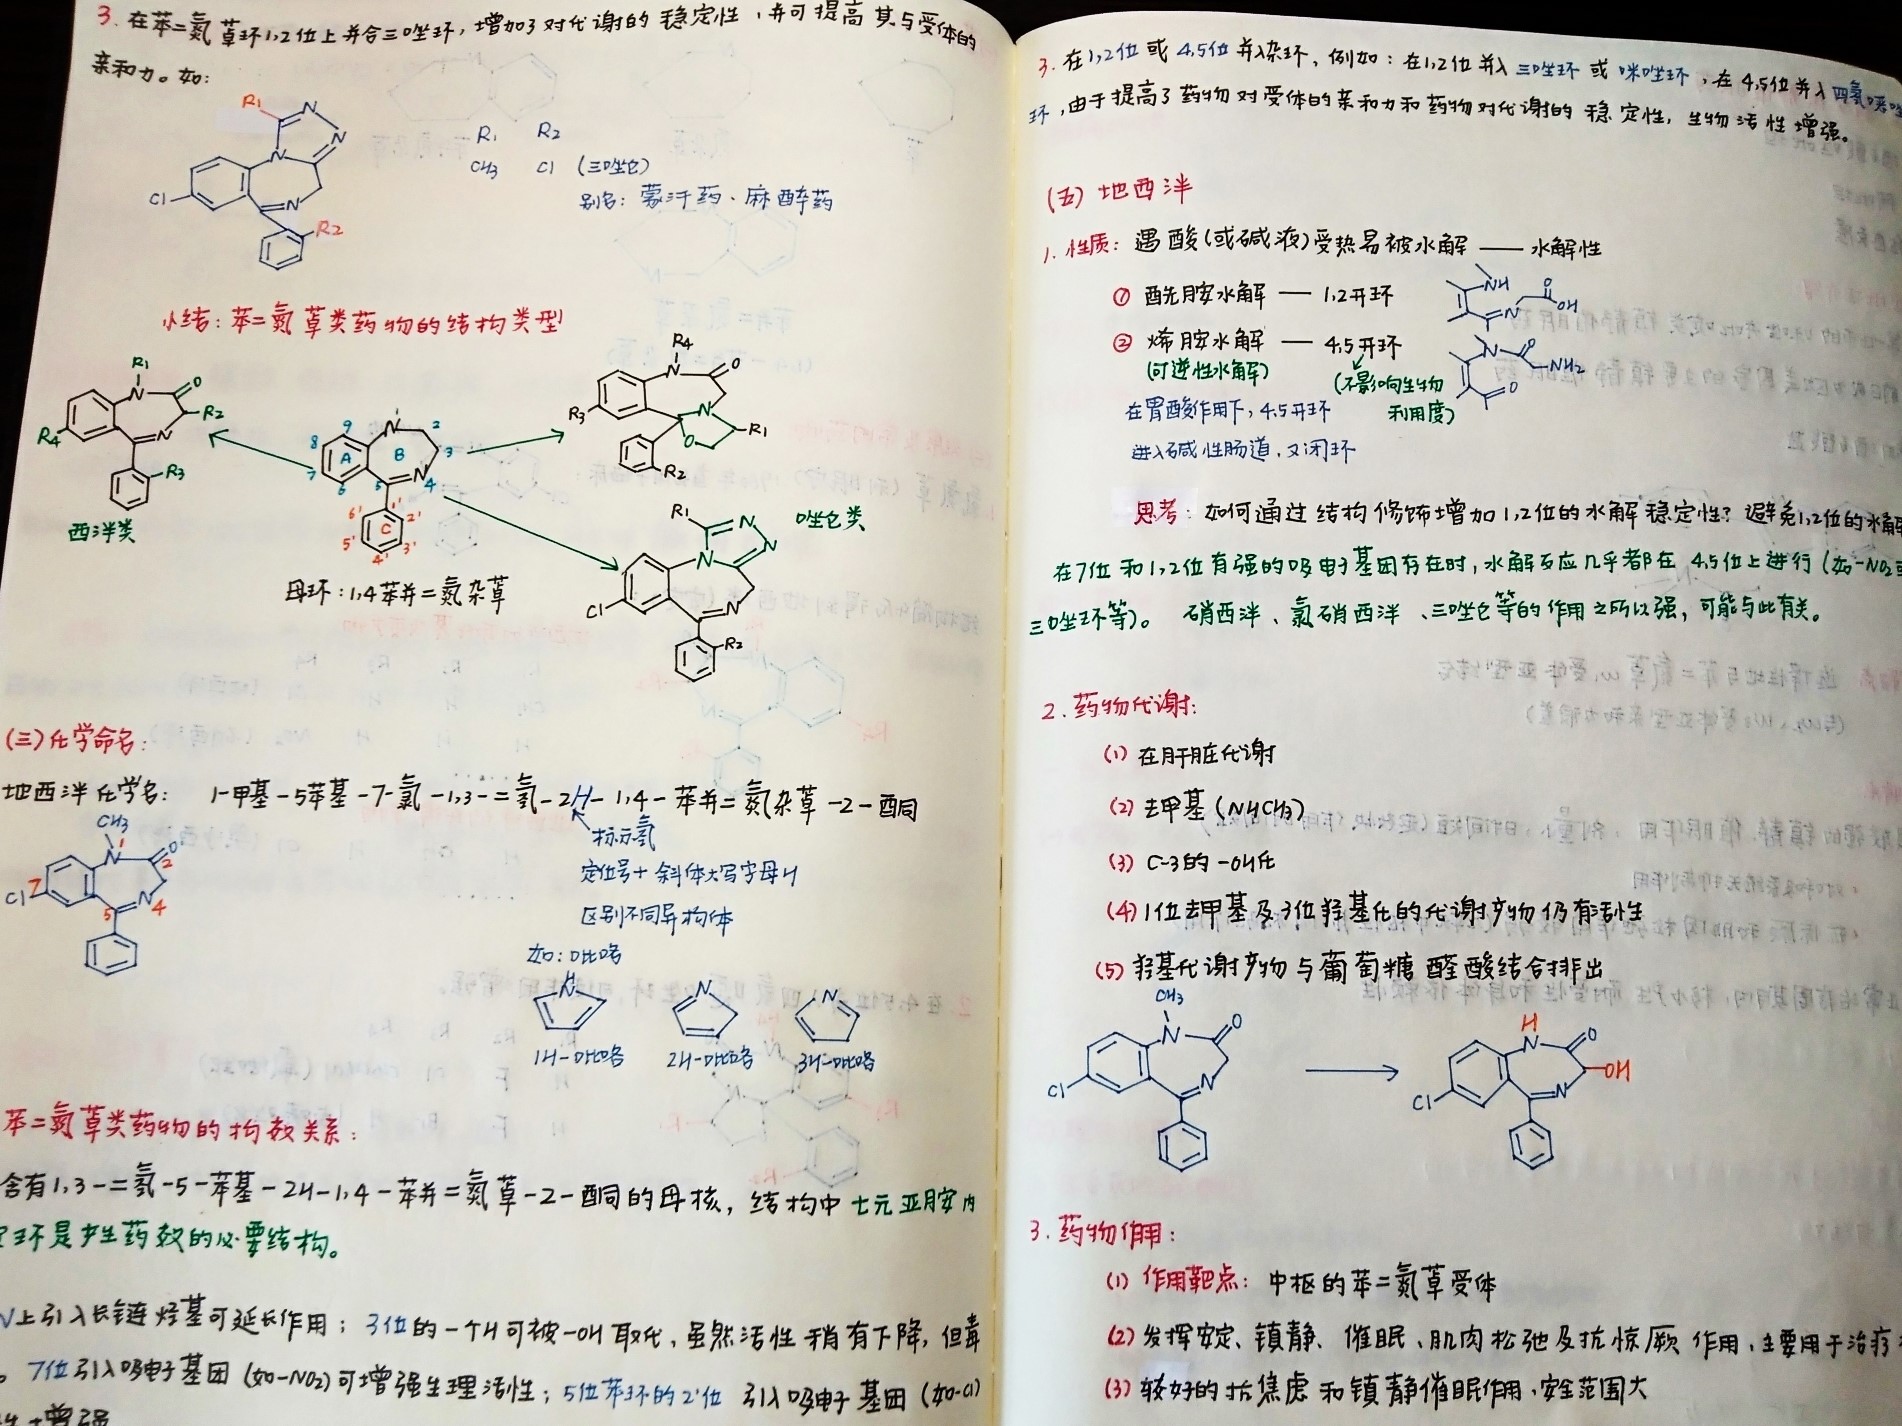 3. 在苯二氮䓬环1,2位上并合三唑环,增加了对代谢的稳定性,并可提高其与受体的
亲和力。如:
R1
N
N
N
N
Cl
R2
R1 R2
CH3 Cl (三唑仑)
别名: 蒙汗药、麻醉药
小结: 苯二氮䓬类药物的结构类型
R1
N
O
R2
R4
N
R3
西泮类
1
N
2
3
4
N
5
6
7
8
9
A
B
C
1'
2'
3'
4'
5'
6'
母环: 1,4苯并二氮杂䓬
R4
N
O
R3
N
O
R1
R2
唑仑类
R1
N
N
N
Cl
N
R2
(三)化学命名:
地西泮化学名: 1-甲基-5苯基-7-氯-1,3-二氢-2H-1,4-苯并二氮杂䓬-2-酮
标示氢
定位号+斜体大写字母H
区别不同异构体
CH3
N
1
O
2
Cl
7
5
N
4
如: 吡咯
H
N
N
N
1H-吡咯 2H-吡咯 3H-吡咯
苯二氮䓬类药物的构效关系:
含有1,3-二氢-5-苯基-2H-1,4-苯并二氮䓬-2-酮的母核, 结构中七元亚胺内
环是产生药效的必要结构。
N上引入长链烃基可延长作用; 3位的一个H可被-OH取代, 虽然活性稍有下降, 但毒
。7位引入吸电子基团(如-NO2)可增强生理活性; 5位苯环的2'位引入吸电子基团(如-Cl)
增强
3. 在1,2位或4,5位并入杂环, 例如: 在1,2位并入三唑环或咪唑环, 在4,5位并入四氢噁唑
环, 由于提高了药物对受体的亲和力和药物对代谢的稳定性, 生物活性增强。
(五)地西泮
1. 性质: 遇酸(或碱液)受热易被水解 —— 水解性
① 酰胺水解 — 1,2开环
NH
N
O
OH
② 烯胺水解 — 4,5开环
(可逆性水解)
(不影响生物
利用度)
N
O
NH2
O
在胃酸作用下, 4,5开环
进入碱性肠道, 又闭环
思考: 如何通过结构修饰增加1,2位的水解稳定性? 避免1,2位的水解
在7位和1,2位有强的吸电子基团存在时, 水解反应几乎都在4,5位上进行(如-NO2或
三唑环等)。 硝西泮、氯硝西泮、三唑仑等的作用之所以强, 可能与此有关。
2. 药物代谢:
(1) 在肝脏代谢
(2) 去甲基(NHCH3)
(3) C-3的-OH化
(4) 1位去甲基及3位羟基化的代谢产物仍有活性
(5) 羟基代谢产物与葡萄糖醛酸结合排出
CH3
N
O
Cl
N
H
N
O
OH
Cl
N
3. 药物作用:
(1) 作用靶点: 中枢的苯二氮䓬受体
(2) 发挥安定、镇静、催眠、肌肉松弛及抗惊厥作用, 主要用于治疗
(3) 较好的抗焦虑和镇静催眠作用, 安全范围大